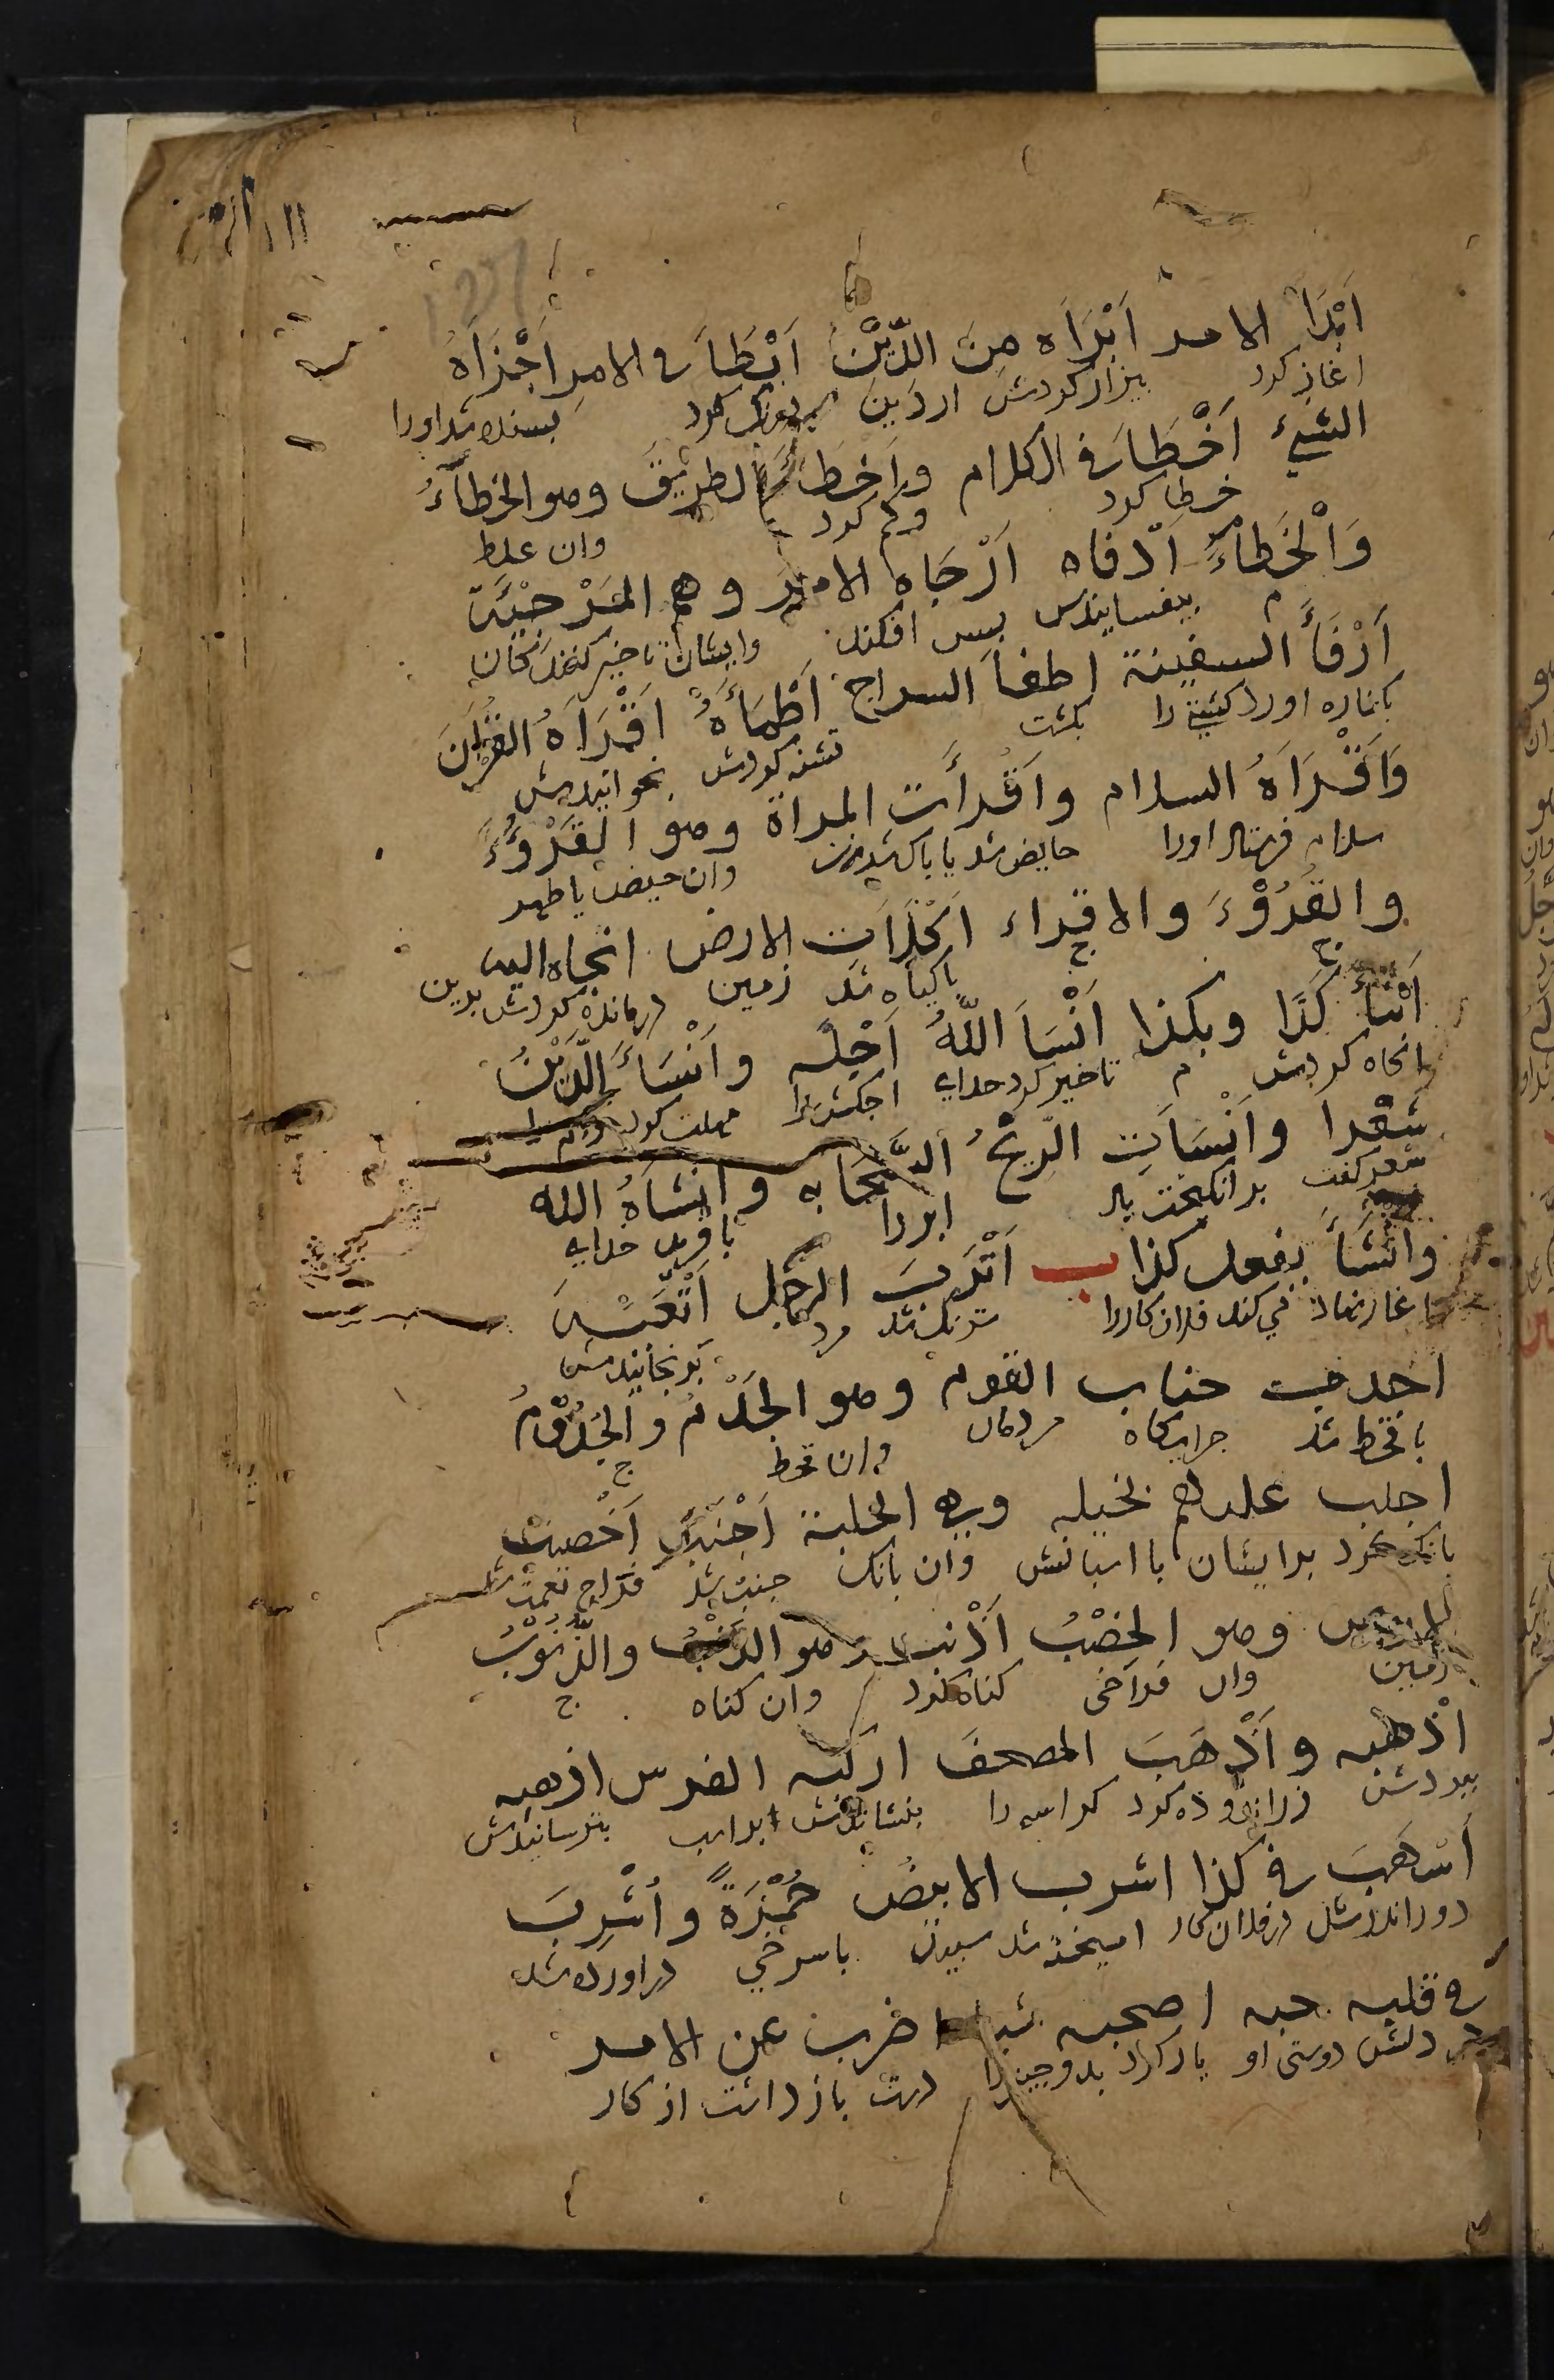 اَبْدَاَ الامر اَبْرَاَه مِنَ الدَّيْنِ اَبْطَاَ فى الامرِ اَجْزَاَهُ
اغاز كرد بيزار كردش از دين درنك كرد بسنده شد اورا
الشيءُ اَخْطَاَ فى الكلام واَخطَاَ الطريقَ وهو الخطاَءُ
خطا كرد وكم كرد وان غلط
وَالْخَطاَءُ اَدفاه اَرْجَاه الامرَ وهم المُرْجِئَة
م بيفسانيدش پس افكند وايشان تاخير كنندكان
اَرْفَأَ السفينة اطفاَ السراج اَظْمَأَهُ اَقْرَاَهُ القُرْآنَ
بكناره اورد كشتي را بكشت تشنه كردش بخوانيدش
وَاَقْرَاَهُ السلام واَقْرأَت المراة وهو القَرْؤُ
سلام فرستاد اورا حايض شد يا پاك شد زن وان حيض يا طهر
والقُرُوْءَ والاقراء اَكْلَاَت الارض الجاه اليه
ج ج باكياه شد زمين درمانده كردش بدين
اَنْبَأَ كَذَا وبكذا اَنْسَاَ اللّهُ اَجَلَه واَنْسَأَ الدَّيْنَ
اكاه كردش م تاخير كرد خداى اجلش را مهلت كرد
شِعْراً واَنْشَاَتِ الرّيْحُ السَّحَابه وانْشاَهُ الله
شعر كفت برانكيخت باد ابر را بافريد خداى
وانْشَأَ يفعل كذا ب اَتْرَبَ الرجُل اَتْعَبَهُ
اغاز نهاد مي كند فلان كار را توانكر شد مرد برنجانيدش
اجدبت جناب القوم وهو الجَدْبُ والجُدُوْبُ
با قحط شد چراكاه مردمان وان قحط ج
اجلب عليهم بخيله وهى الجلبة اَجْنَبَ اَخْصبت
بانك كرد برايشان با اسبانش وان بانك جنب شد فراخ نعمت شد
الارض وهو الخِصْبُ اَذْنب وهو الذنْبُ والذُّنُوْبُ
زمين وان فراخى كناه كرد وان كناه ج
اَذْهبه واَذْهَبَ المصحفَ اركبه الفرس ارهبه
ببردش زراندوده كرد كراسه را بنشاندش بر اسب بترسانيدش
اَسْهَبَ فى كذا اشرب الابيضُ حُمْرَةً واُشْرِبَ
دور اندر شد در فلان كار اميخته شد سپيدى با سرخي دراورده شد
فى قلبه حبه اصحبه شيا اضرب عن الامر
در دلش دوستى او يار كرد بدو چيزيرا دست باز داشت از كار